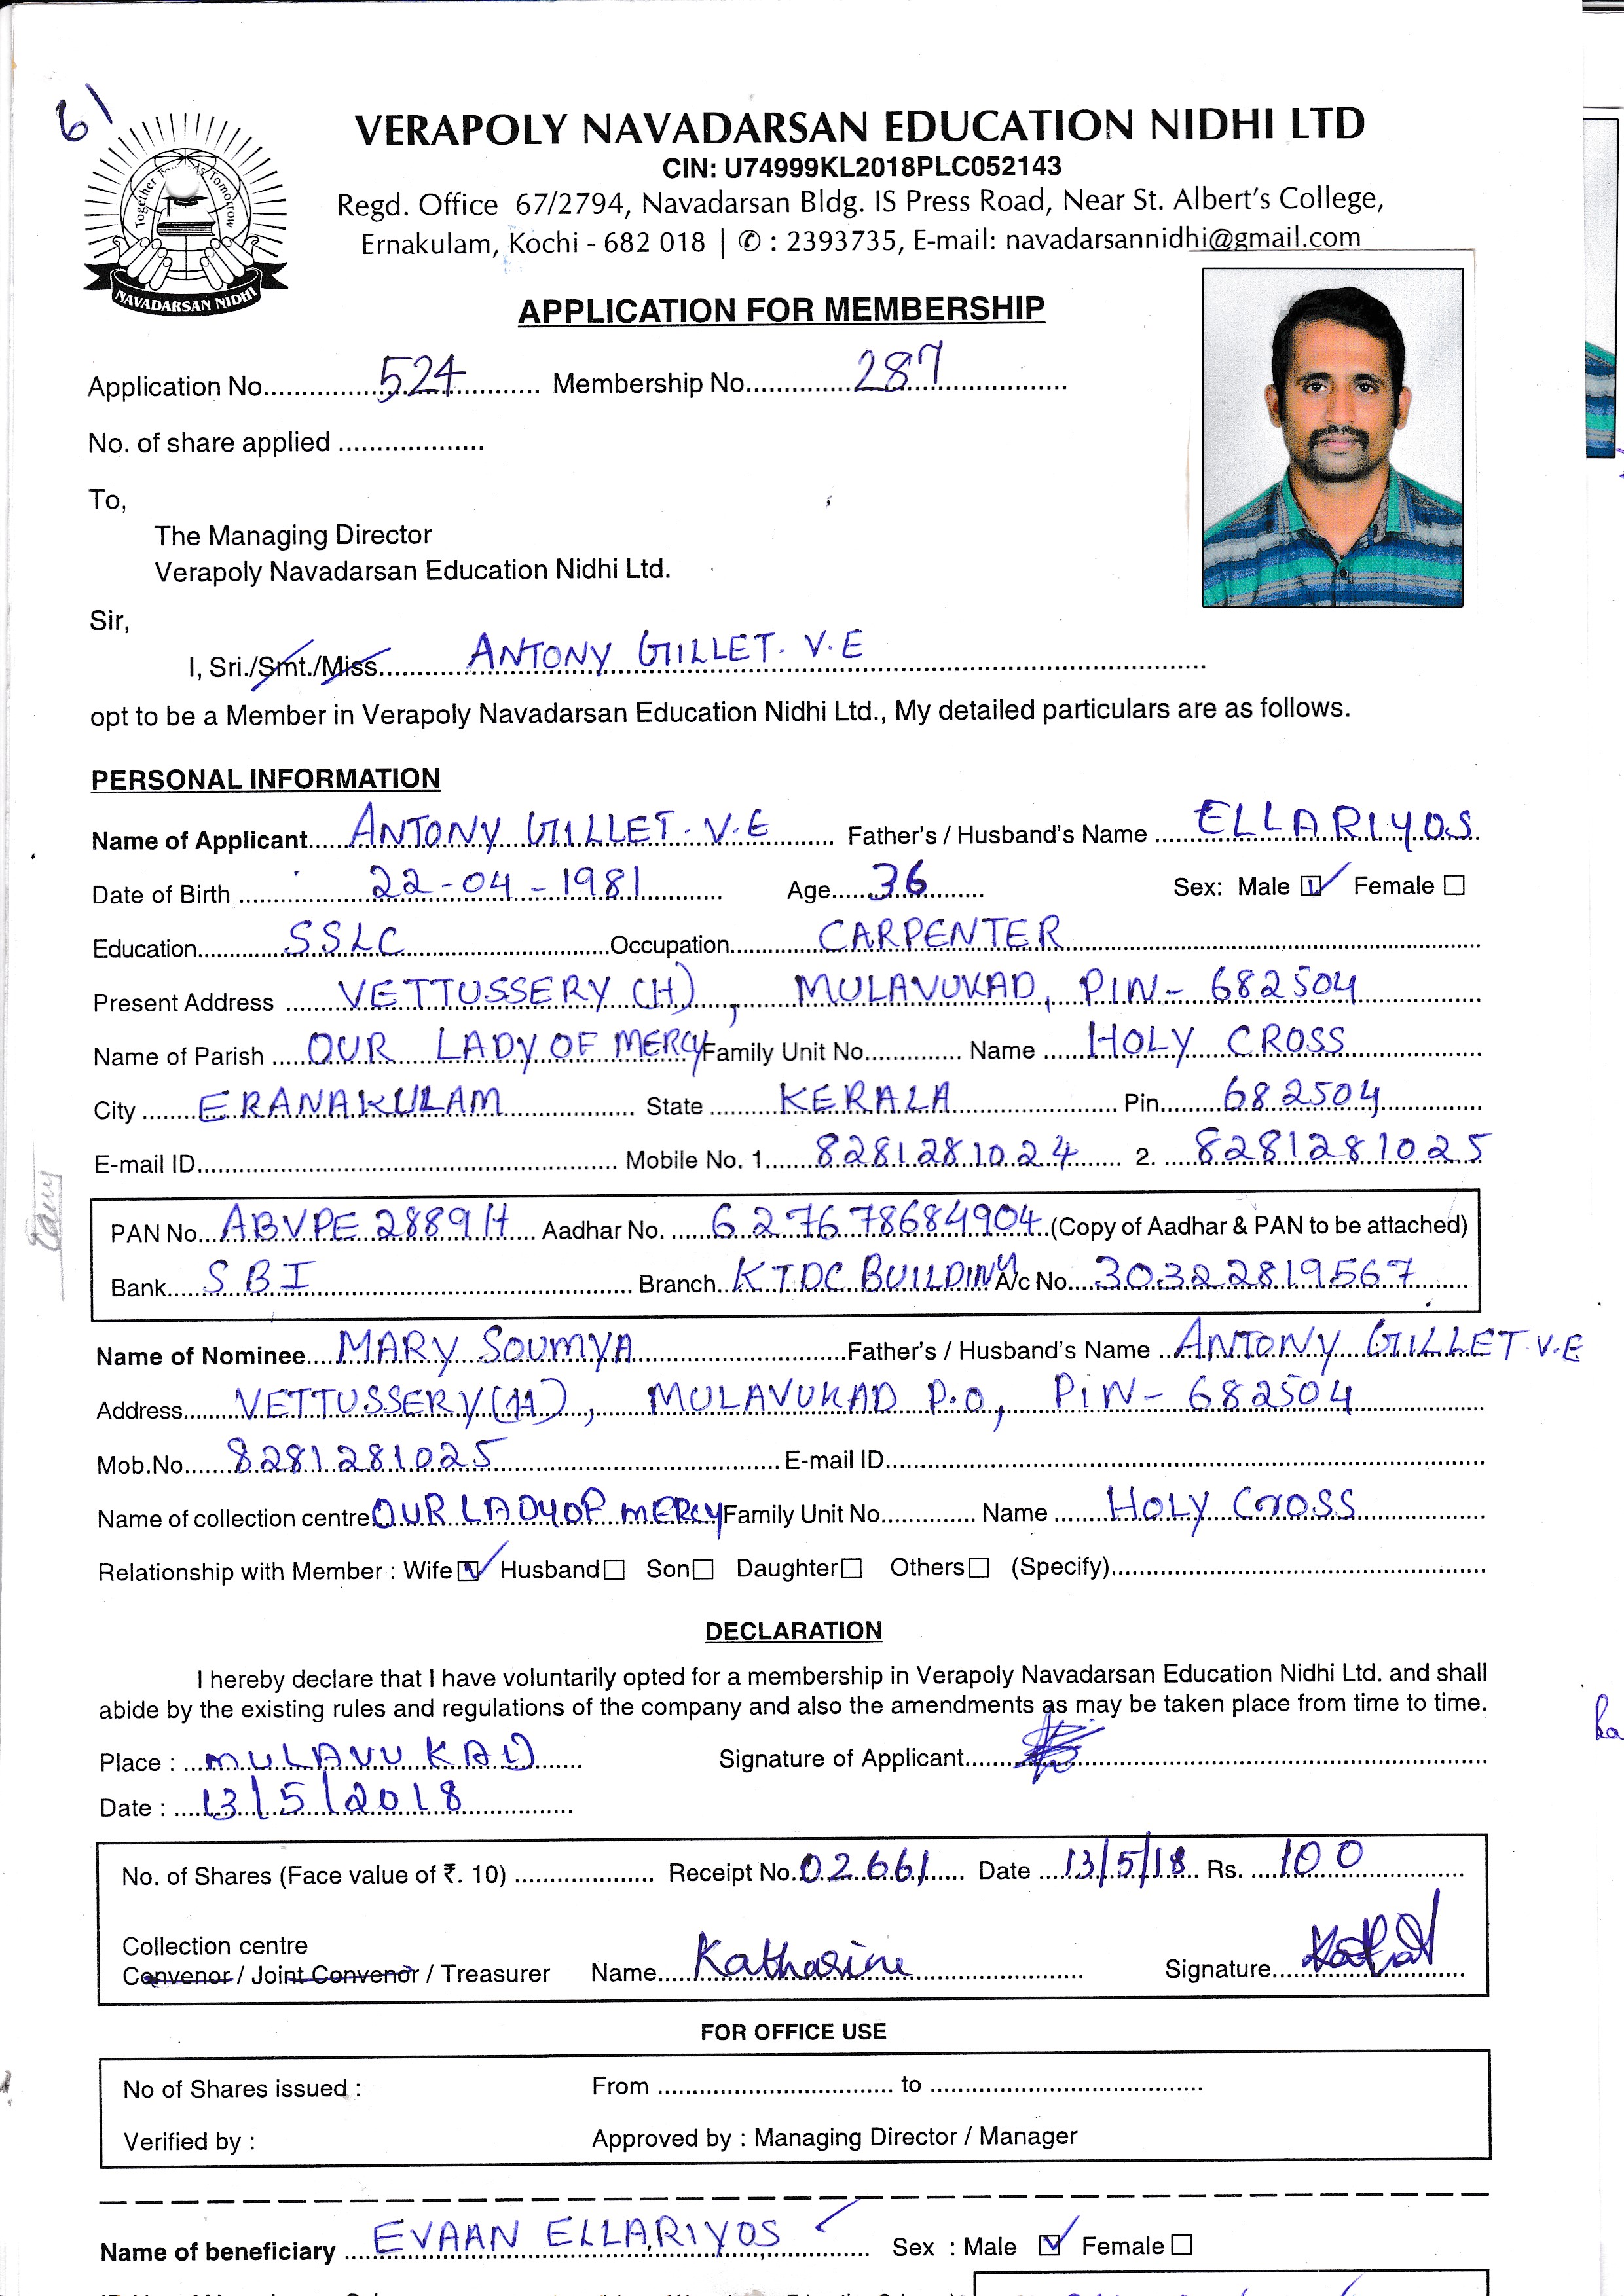 61
VERAPOLY NAVADARSAN EDUCATION NIDHI LTD
CIN: U74999KL2018PLC052143
Regd. Office 67/2794, Navadarsan Bldg. IS Press Road, Near St. Albert's College,
Ernakulam, Kochi - 682 018 | ✆ : 2393735, E-mail: navadarsannidhi@gmail.com
Together Towards Tomorrow
NAVADARSAN NIDHI
APPLICATION FOR MEMBERSHIP
Application No. 524 Membership No. 287
No. of share applied
To,
The Managing Director
Verapoly Navadarsan Education Nidhi Ltd.
Sir,
I, Sri./Smt./Miss. ANTONY GILLET. V.E
opt to be a Member in Verapoly Navadarsan Education Nidhi Ltd., My detailed particulars are as follows.
PERSONAL INFORMATION
Name of Applicant ANTONY GILLET. V.E Father's / Husband's Name ELLARIYOS
Date of Birth 22-04-1981 Age 36 Sex: Male ☑ Female ☐
Education SSLC Occupation CARPENTER
Present Address VETTUSSERY (H), MULAVUKAD, PIN- 682504
Name of Parish OUR LADY OF MERCY Family Unit No. Name HOLY CROSS
City ERANAKULAM State KERALA Pin 682504
E-mail ID Mobile No. 1 8281281024 2. 8281281025
PAN No. ABVPE2889H Aadhar No. 627678684904 (Copy of Aadhar & PAN to be attached)
Bank SBI Branch KTDC BUILDING A/c No. 30322819567
Name of Nominee MARY SOUMYA Father's / Husband's Name ANTONY GILLET V.E
Address VETTUSSERY (H), MULAVUKAD P.O, PIN- 682504
Mob.No. 8281281025 E-mail ID
Name of collection centre OUR LADY OF MERCY Family Unit No. Name HOLY CROSS
Relationship with Member : Wife ☑ Husband ☐ Son ☐ Daughter ☐ Others ☐ (Specify)
DECLARATION
I hereby declare that I have voluntarily opted for a membership in Verapoly Navadarsan Education Nidhi Ltd. and shall
abide by the existing rules and regulations of the company and also the amendments as may be taken place from time to time.
Place : MULAVUKAD Signature of Applicant
Date : 13/5/2018
No. of Shares (Face value of ₹. 10) Receipt No. 02661 Date 13/5/18 Rs. 100
Collection centre
Convenor / Joint Convenor / Treasurer Name Katharine Signature
FOR OFFICE USE
No of Shares issued : From to
Verified by : Approved by : Managing Director / Manager
Name of beneficiary EVAAN ELLARIYOS Sex : Male ☑ Female ☐